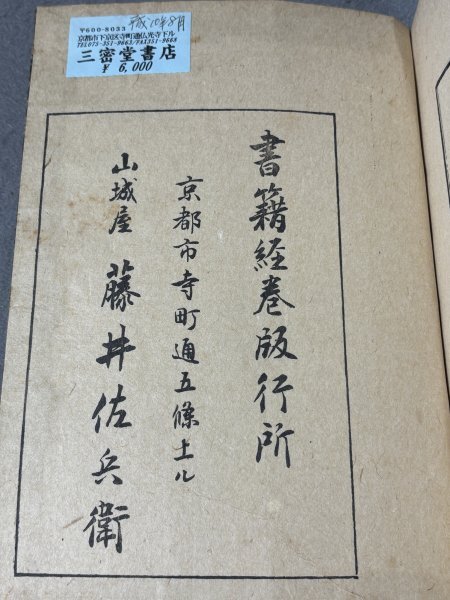 平成10年8月
〒600-8053
京都市下京区寺町通仏光寺下ル
TEL075-351-9663/FAX351-9668
三密堂書店
¥ 6,000
書籍経巻版行所
京都市寺町通五條上ル
山城屋 藤井佐兵衛